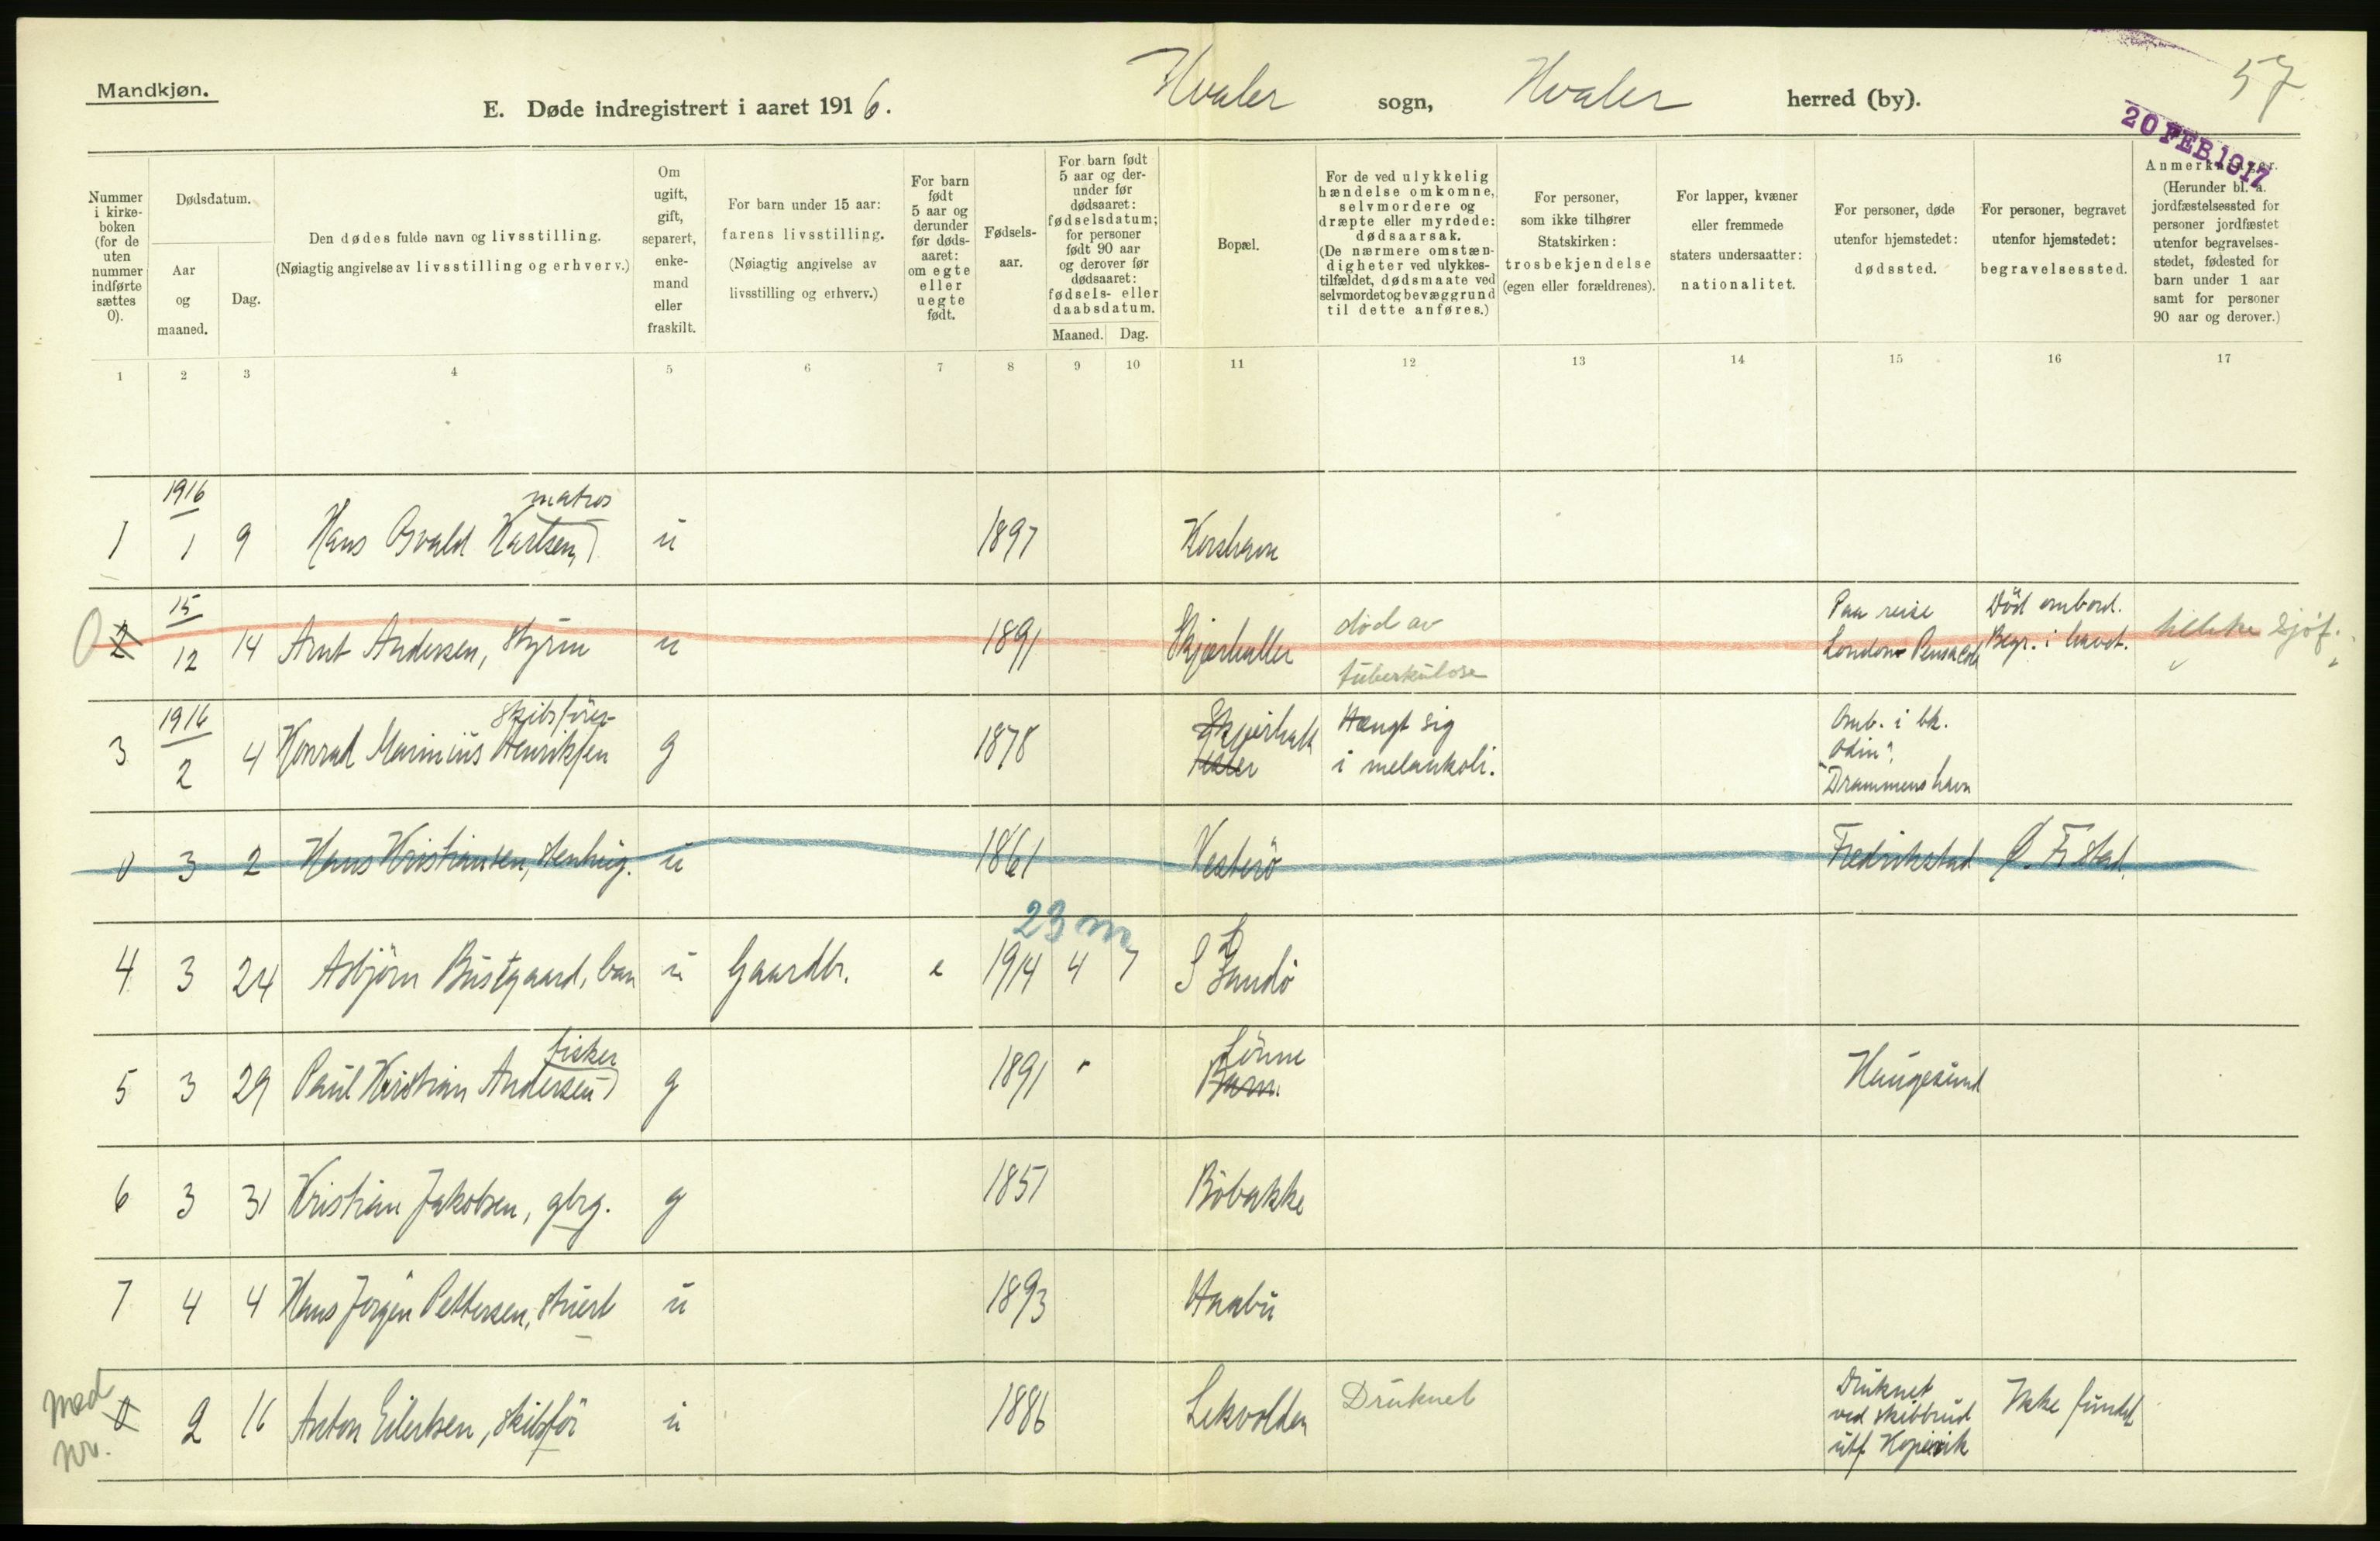 57
Mandkjøn.
E. Døde indregistrert i aaret 1916. Hvaler sogn, Hvaler herred (by).
20 FEB 1917
Nummer i kirke-boken (for de uten nummer indførte sættes 0).
Dødsdatum.
Aar og maaned.
Dag.
Den dødes fulde navn og livsstilling.
(Nøiagtig angivelse av livsstilling og erhverv.)
Om ugift, gift, separert, enke-mand eller fraskilt.
For barn under 15 aar: farens livsstilling.
(Nøiagtig angivelse av livsstilling og erhverv.)
For barn født 5 aar og derunder før døds-aaret: om egte eller uegte født.
Fødsels-aar.
For barn født 5 aar og der-under før dødsaaret: fødselsdatum; for personer født 90 aar og derover før dødsaaret: fødsels- eller daabsdatum.
Maaned. Dag.
Bopæl.
For de ved ulykkelig hændelse omkomne, selvmordere og dræpte eller myrdede: dødsaarsak.
(De nærmere omstæn-digheter ved ulykkes-tilfældet, dødsmaate ved selvmordet og bevæggrund til dette anføres.)
For personer, som ikke tilhører Statskirken: trosbekjendelse (egen eller forældrenes).
For lapper, kvæner eller fremmede staters undersaatter: nationalitet.
For personer, døde utenfor hjemstedet: dødssted.
For personer, begravet utenfor hjemstedet: begravelsessted.
Anmerkninger.
(Herunder bl. a. jordfæstelsessted for personer jordfæstet utenfor begravelses-stedet, fødested for barn under 1 aar samt for personer 90 aar og derover.)
1 2 3 4 5 6 7 8 9 10 11 12 13 14 15 16 17
1 1916 1 9 Hans Osvald Karlsen, matros u 1897 Korshavn
0 2 15 12 14 Arnt Andersen, styrm u 1891 Skjærhallen død av tuberkulose Paa reise London Pensacola Død ombord. Begr. i havet.
3 1916 2 4 Konrad Marinius Henriksen skibsfører g 1878 Skjærhall Hængt sig i melankoli. Omb. i bk. "Odin", Drammens havn
0 3 2 Hans Kristiansen, stenhug. u 1861 Vesterö Fredrikstad Ø. Fr.stad.
23 m
4 3 24 Asbjörn Bustgaard, barn u Gaardbr. e 1914 4 7 S Sandö
5 3 29 Paul Kristian Andersen fisker g 1891 Haugesund
6 3 31 Kristian Jakobsen, gbrg. g 1851 Böbakke
7 4 4 Hans Jörgen Pettersen, stuert u 1893 Haabu
med nr. 0 2 16 Anton Eilertsen, skibsför u 1886 Lekvolden Druknet Druknet ved skibbrud utf. Kopervik Ikke fundet